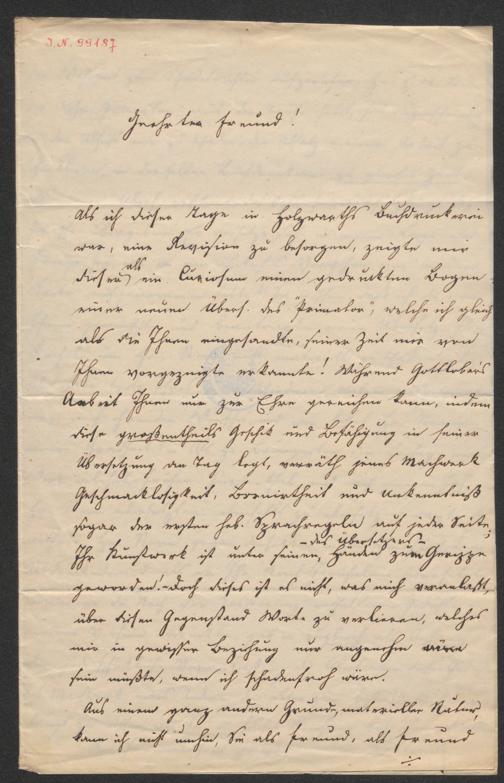 J.N. 99187
Geehrter Freund!
Als ich dieser Tage in Holzwarths Buchdruckerei
war, eine Revision zu besorgen, zeigte mir
dieser als ein Curiosum einen gedruckten Bogen
einer neuen Übers. des "Primator", welche ich gleich
als die Ihnen eingesandte, seiner Zeit mir von
Ihnen vorgezeigte erkannte! Während Gottlobers
Arbeit Ihnen nur zur Ehre gereichen kann, indem
diese großentheils Geschik und Befähigung in seiner
Übersetzung an Tag legt, verräth jenes Machwerk
Geschmacklosigkeit, Bornirtheit und Unkenntniß
sogar der ersten heb. Sprachregeln auf jeder Seite;
Ihr Kunstwerk ist unter seinen, – des Übersetzers – Händen zum Gerippe
geworden! – Doch dieses ist es nicht, was mich veranlaßt,
über diesen Gegenstand Worte zu verlieren, welches
mir in gewisser Beziehung nur angenehm
sein müßte, wenn ich schadenfroh wäre.
Aus einem ganz andern Grunde, materieller Natur,
kann ich nicht umhin, Sie als Freund, als Freund